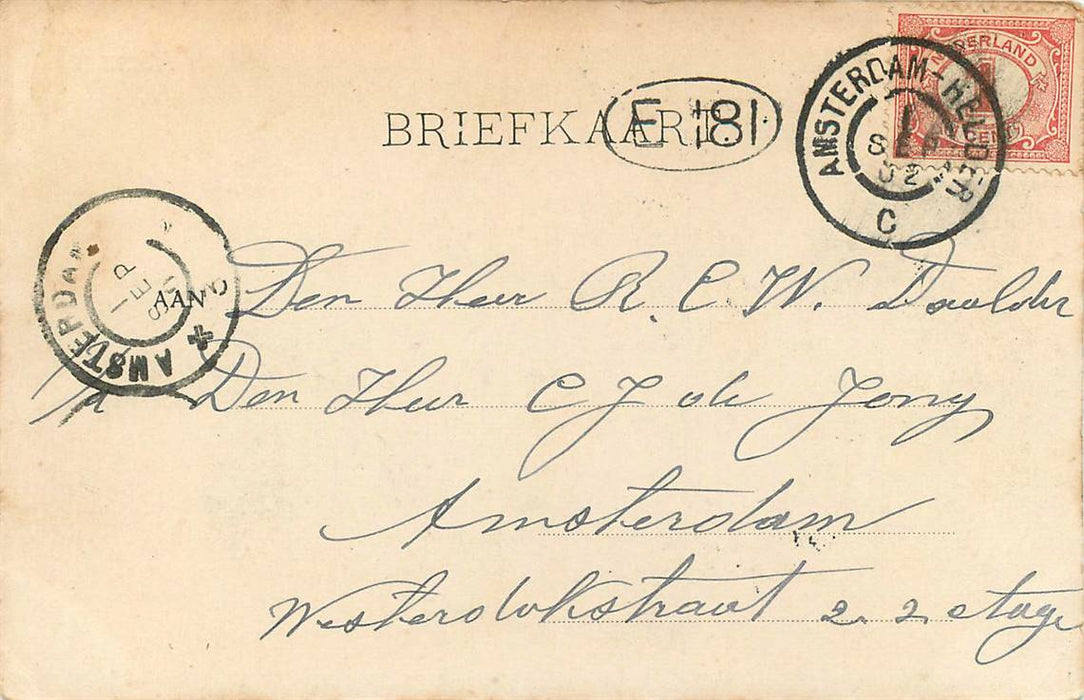 NEDERLAND
CENT
AMSTERDAM-HELDER
SEP
02
C
BRIEFKAART.
E 181
AMSTERDAM
1 SEP
AANG
Den Heer R. C. W. Daalder
p/a Den Heer C J de Jong
Amsterdam
Westerdokstraat 2. 2 etage